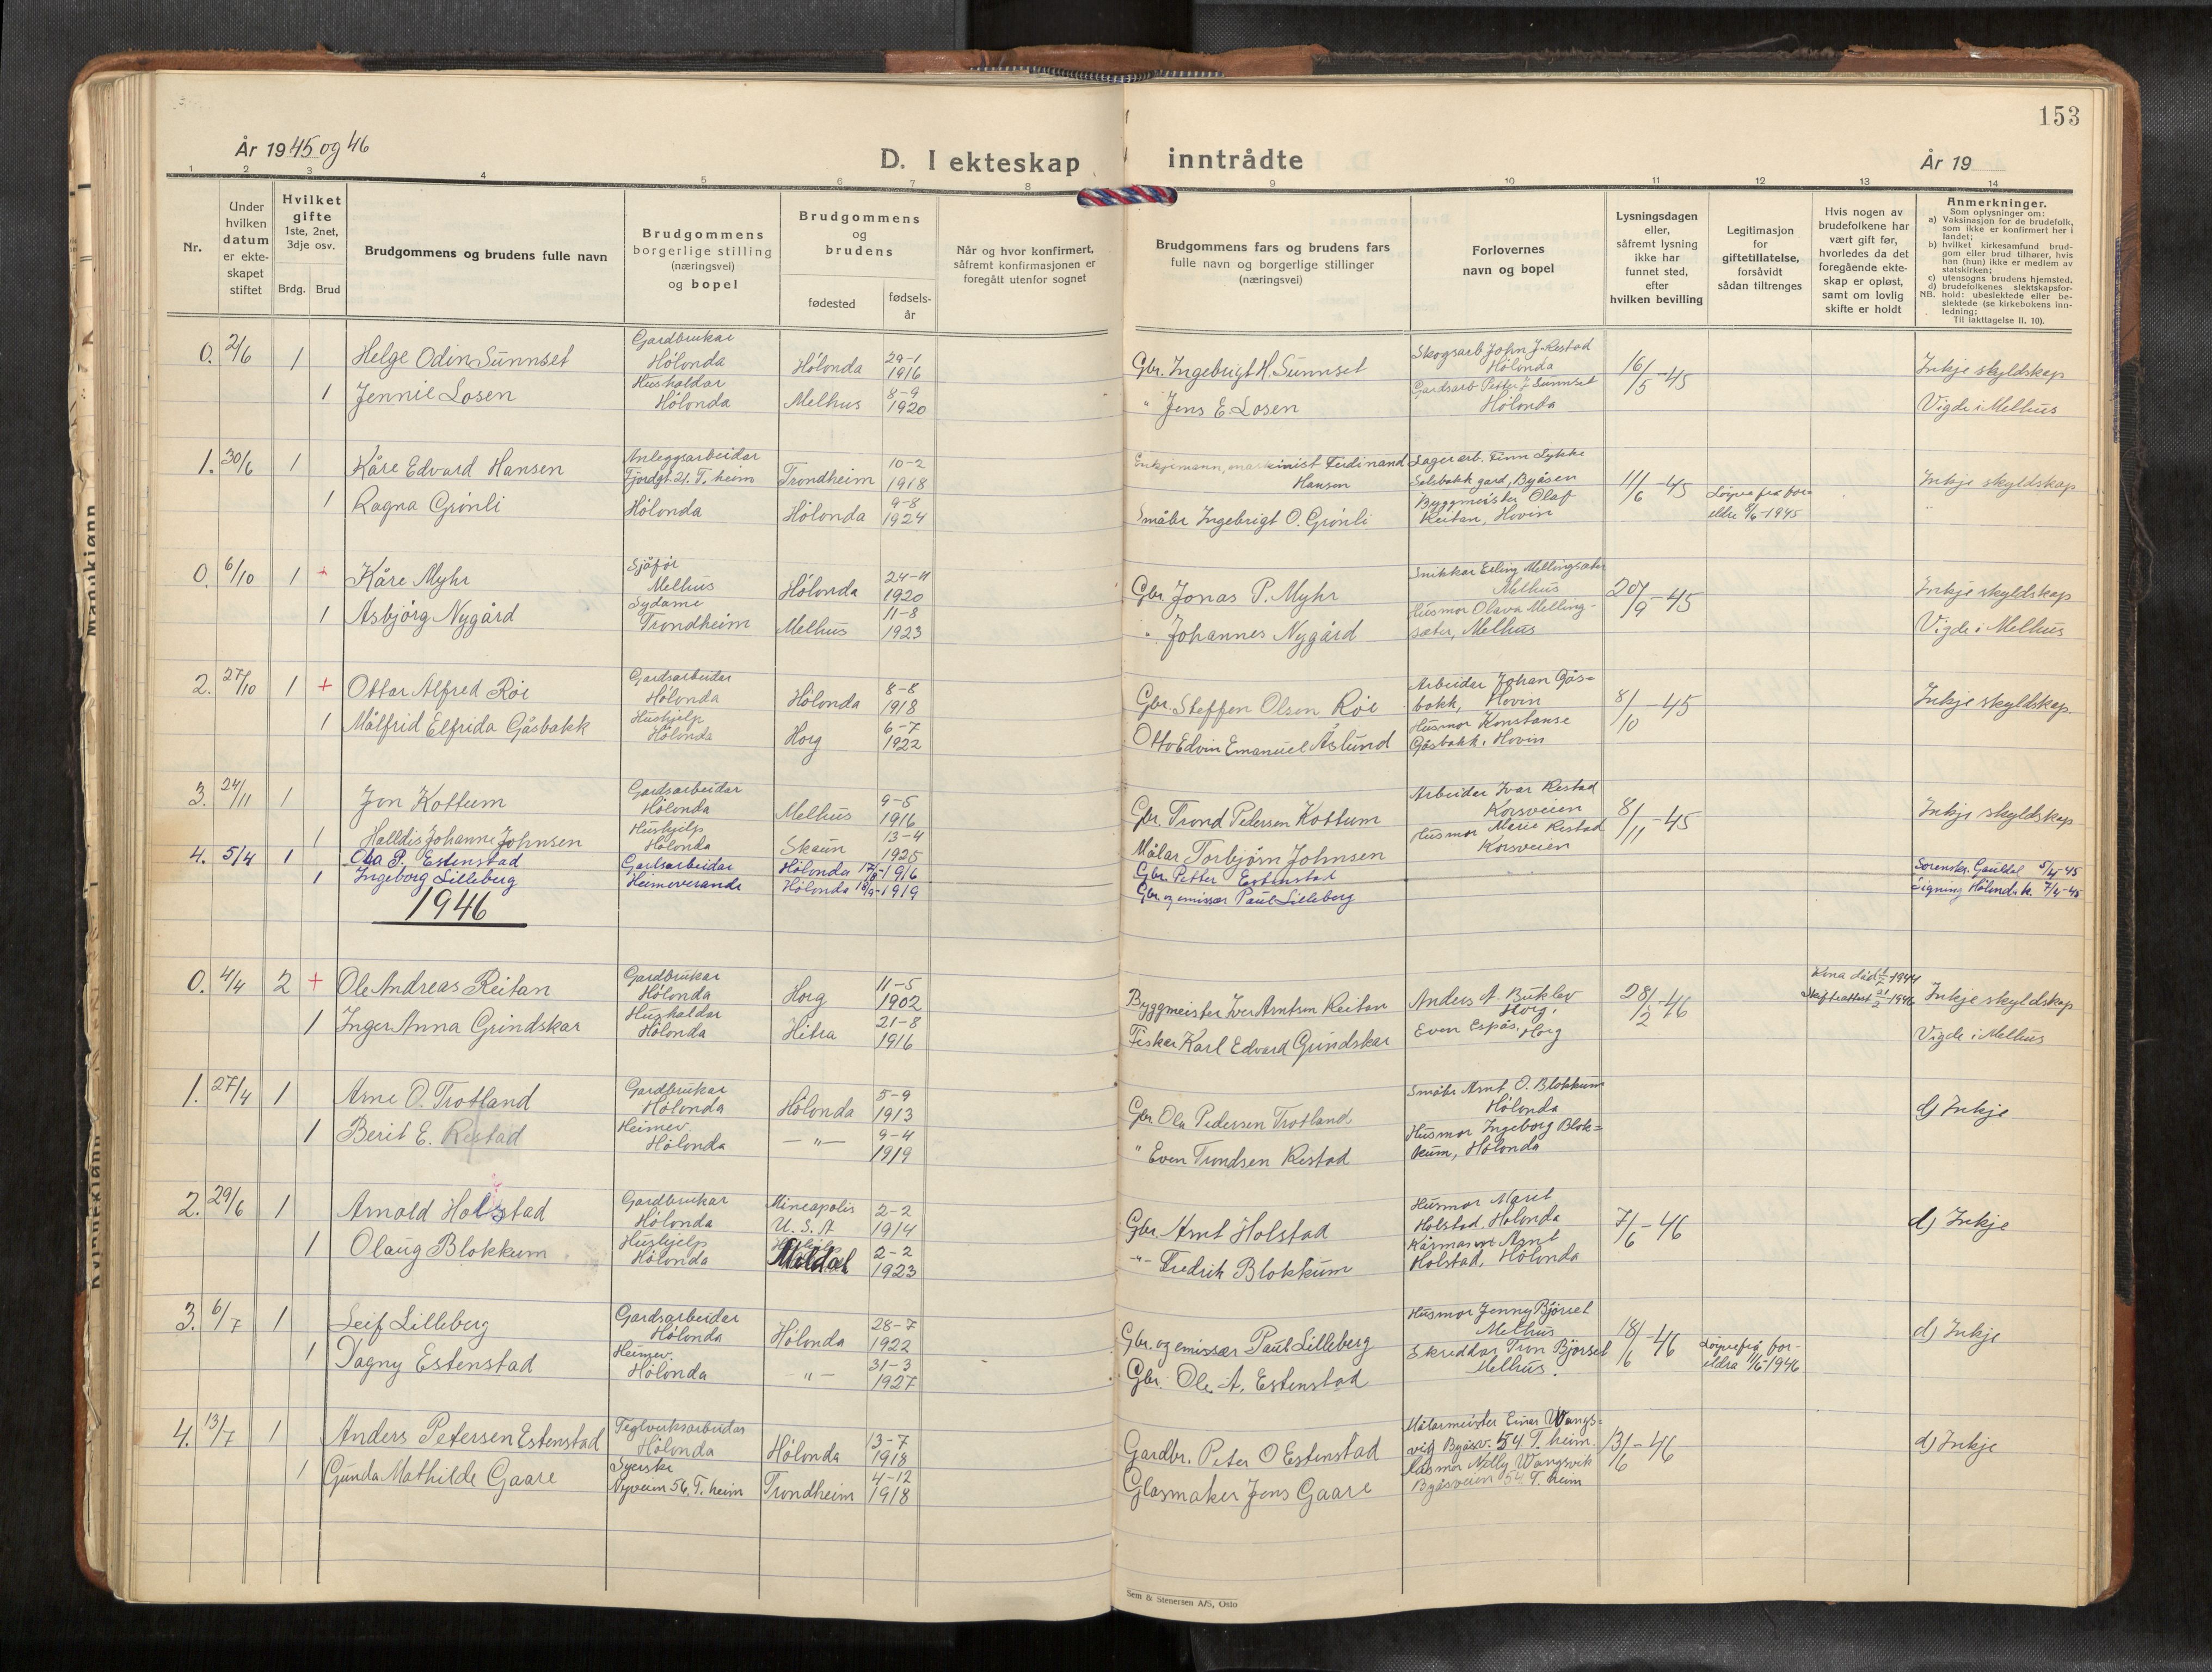 153
År 1945 og 46
D. I ekteskap inntrådte
År 19
1 2 3 4 5 6 7 8 9 10 11 12 13 14
Nr.
Under hvilken datum er ekte-skapet stiftet
Hvilket gifte 1ste, 2net, 3dje osv.
Brdg. Brud
Brudgommens og brudens fulle navn
Brudgommens borgerlige stilling (næringsvei) og bopel
Brudgommens og brudens
fødested
fødsels-år
Når og hvor konfirmert, såfremt konfirmasjonen er foregått utenfor sognet
Brudgommens fars og brudens fars fulle navn og borgerlige stillinger (næringsvei)
Forlovernes navn og bopel
Lysningsdagen eller, såfremt lysning ikke har funnet sted, efter hvilken bevilling
Legitimasjon for giftetillatelse, forsåvidt sådan tiltrenges
Hvis nogen av brudefolkene har vært gift før, hvorledes da det foregående ekte-skap er opløst, samt om lovlig skifte er holdt
Anmerkninger.
Som oplysninger om:
a) Vaksinasjon for de brudefolk, som ikke er konfirmert her i landet;
b) hvilket kirkesamfund brud-gom eller brud tilhører, hvis han (hun) ikke er medlem av statskirken;
c) utensogns brudens hjemsted.
d) brudefolkenes slektskapsfor-hold: ubeslektede eller be-slektede (se kirkebokens inn-ledning;
NB. Til iakttagelse II. 10).
0. 2/6 1 Helge Odin Sunnset Gardbrukar Hölonda Hölonda 29-1 1916 Gbr. Ingebrigt H. Sunnset Skogsarb John J. Restad Hölonda 16/5-45 Inkje skyldskap
1 Jennie Losen Hushaldar Hölonda Melhus 8-9 1920 " Jens E. Losen Gardsarb Petter J. Sunnset Hölonda Vigde i Melhus
1. 30/6 1 Kåre Edvard Hansen Anleggsarbeidar Fjordgt. 21. T. heim Trondheim 10-2 1918 Enkjemann, maskinist Ferdinand Hansen Lagerarb. Finn Lykke Solbakk gard, Byåsen 11/6-45 Inkje skyldskap
1 Ragna Grönli Hölonda Hölonda 9-8 1924 Småbr Ingebrigt O. Grönli Byggmeister Olaf Reitan, Hovin Löyve frå for-eldre 8/6-1945
0. 6/10 1 + Kåre Myhr Sjåför Melhus Hölonda 24-11 1920 Gbr. Jonas P. Myhr Snikkar Erling Mellingsæter Melhus 20/9-45 Inkje skyldskap
1 Asbjörg Nygård Sydame Trondheim Melhus 11-8 1923 " Johannes Nygård Husmor Olava Melling-sæter, Melhus Vigde i Melhus
2. 27/10 1 + Ottar Alfred Röe Gardsarbeidar Hölonda Hölonda 8-8 1918 Gbr. Steffen Olsen Röe Arbeidar Johan Gås-bakk, Hovin 8/10-45 Inkje skyldskap.
1 Målfrid Elfrida Gåsbakk Hushjelp Hölonda Horg 6-7 1922 Otto Edvin Emanuel Åslund Husmor Konstanse Gåsbakk, Hovin
3. 24/11 1 Jon Kottum Gardsarbeidar Hölonda Melhus 9-5 1916 Gbr. Trond Pedersen Kottum Arbeidar Ivar Restad Korsveien 8/11-45 Inkje skyldskap
1 Halldis Johanne Johnsen Hushjelp Hölonda Skaun 13-4 1925 Målar Torbjörn Johnsen Husmor Marie Restad Korsveien
4. 5/4 1 Ola P. Estenstad Gardsarbeidar Hölonda 1916 Gbr. Petter Estenstad Sorenskr. Gauldal 5/4-45
1 Ingeborg Lilleberg Heimeverande Hölonda 1919 Gbr. og emissær Paul Lilleberg Signing Hölonda k. 7/4-45
1946
0. 4/4 2 + Ole Andreas Reitan Gardbrukar Hölonda Horg 11-5 1902 Byggmeister Iver Arntsen Reitan Anders A. Buklev Horg, 28/2-46 Kona död 1944 Skifteattest 21/2 1946 Inkje skyldskap
1 Inger Anna Grindskar Hushaldar Hölonda Hitra 21-8 1916 Fisker Karl Edvard Grindskar Even Espås, Horg Vigde i Melhus
1. 27/4 1 Arne O. Trotland Gardbrukar Hölonda Hölonda 5-9 1913 Gbr. Ola Pedersen Trotland Småbr Arnt O. Blokkum Hölonda d) Inkje
1 Berit E. Restad Heimev. Hölonda — " — 9-4 1919 " Even Trondsen Restad Husmor Ingeborg Blok-kum, Hölonda
2. 29/6 1 Arnold Holstad Gardbrukar Hölonda Mineapolis U.S.A 2-2 1914 Gbr. Arnt Holstad Husmor Marit Holstad, Hölonda 7/6-46 d) Inkje
1 Olaug Blokkum Hushjelp Hölonda Meldal 2-2 1923 -"- Fredrik Blokkum Arnt Holstad, Hölonda
3. 6/7 1 Leif Lilleberg Gardsarbeidar Hölonda Hölonda 28-7 1922 Gbr. og emissær Paul Lilleberg Husmor Jenny Björset Melhus 18/6-46 d) Inkje
1 Dagny Estenstad Heimev. Hölonda — " — 31-3 1927 Gbr. Ole A. Estenstad Skreddar Tron Björset Melhus. Löyve frå for-eldra 11/6-1946
4. 13/7 1 Anders Petersen Estenstad Teglverksarbeidar Hölonda Hölonda 13-7 1918 Gardbr. Peter O Estenstad Målarmeister Einar Wangs-vik Byåsv. 54 T. heim. 13/6-46 d) Inkje
1 Gunda Mathilde Gaare Syerske Nyveien 56, T. heim Trondheim 4-12 1918 Glasmaker Jens Gaare Husmor Nelly Wangsvik Byåsveien 54 T. heim
Sem & Stenersen A/S, Oslo